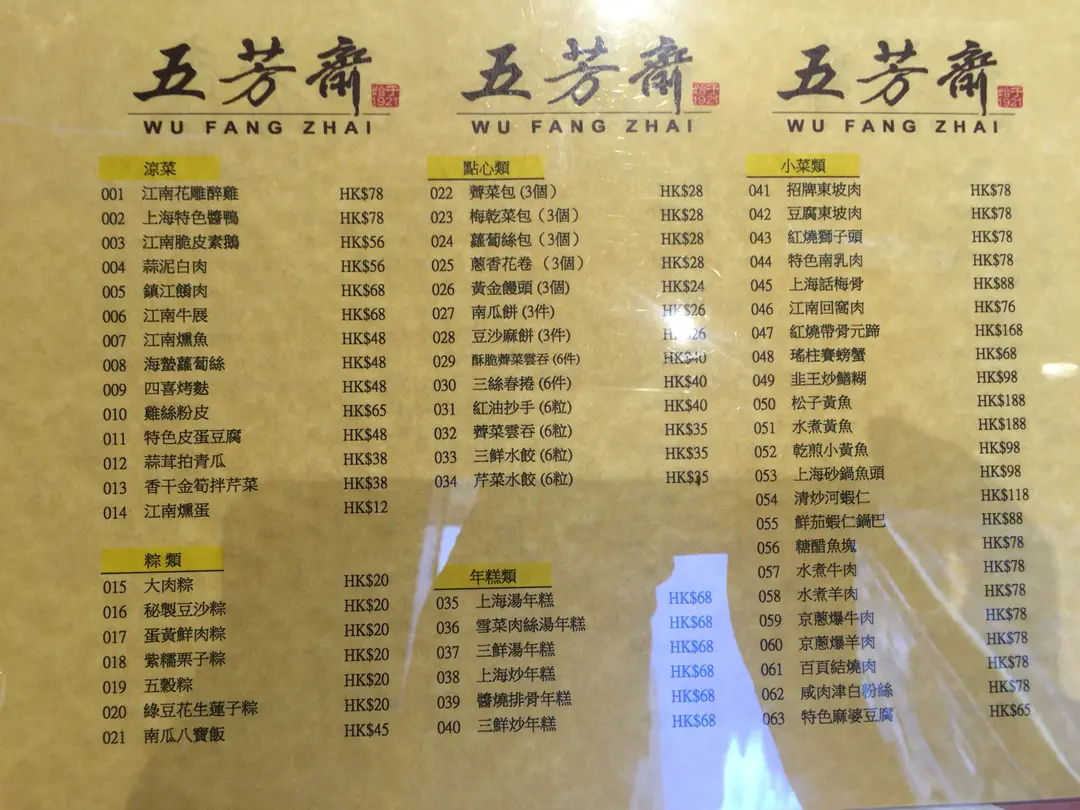 五芳齋
始于1921
WU FANG ZHAI
涼菜
001 江南花雕醉雞 HK$78
002 上海特色醬鴨 HK$78
003 江南脆皮素鵝 HK$56
004 蒜泥白肉 HK$56
005 鎮江餚肉 HK$68
006 江南牛展 HK$68
007 江南燻魚 HK$48
008 海蟄蘿蔔絲 HK$48
009 四喜烤麩 HK$48
010 雞絲粉皮 HK$65
011 特色皮蛋豆腐 HK$48
012 蒜茸拍青瓜 HK$38
013 香干金筍拌芹菜 HK$38
014 江南燻蛋 HK$12
粽類
015 大肉粽 HK$20
016 秘製豆沙粽 HK$20
017 蛋黃鮮肉粽 HK$20
018 紫糯栗子粽 HK$20
019 五穀粽 HK$20
020 綠豆花生蓮子粽 HK$20
021 南瓜八寶飯 HK$45
五芳齋
始于1921
WU FANG ZHAI
點心類
022 薺菜包 (3個) HK$28
023 梅乾菜包 (3個) HK$28
024 蘿蔔絲包 (3個) HK$28
025 蔥香花卷 (3個) HK$28
026 黃金饅頭 (3個) HK$24
027 南瓜餅 (3件) HK$26
028 豆沙麻餅 (3件) HK$26
029 酥脆薺菜雲吞 (6件) HK$40
030 三絲春捲 (6件) HK$40
031 紅油抄手 (6粒) HK$40
032 薺菜雲吞 (6粒) HK$35
033 三鮮水餃 (6粒) HK$35
034 芹菜水餃 (6粒) HK$35
年糕類
035 上海湯年糕 HK$68
036 雪菜肉絲湯年糕 HK$68
037 三鮮湯年糕 HK$68
038 上海炒年糕 HK$68
039 醬燒排骨年糕 HK$68
040 三鮮炒年糕 HK$68
五芳齋
始于1921
WU FANG ZHAI
小菜類
041 招牌東坡肉 HK$78
042 豆腐東坡肉 HK$78
043 紅燒獅子頭 HK$78
044 特色南乳肉 HK$78
045 上海話梅骨 HK$88
046 江南回窩肉 HK$76
047 紅燒帶骨元蹄 HK$168
048 瑤柱賽螃蟹 HK$68
049 韭王炒鱔糊 HK$98
050 松子黃魚 HK$188
051 水煮黃魚 HK$188
052 乾煎小黃魚 HK$98
053 上海砂鍋魚頭 HK$98
054 清炒河蝦仁 HK$118
055 鮮茄蝦仁鍋巴 HK$88
056 糖醋魚塊 HK$78
057 水煮牛肉 HK$78
058 水煮羊肉 HK$78
059 京蔥爆牛肉 HK$78
060 京蔥爆羊肉 HK$78
061 百頁結燒肉 HK$78
062 咸肉津白粉絲 HK$78
063 特色麻婆豆腐 HK$65